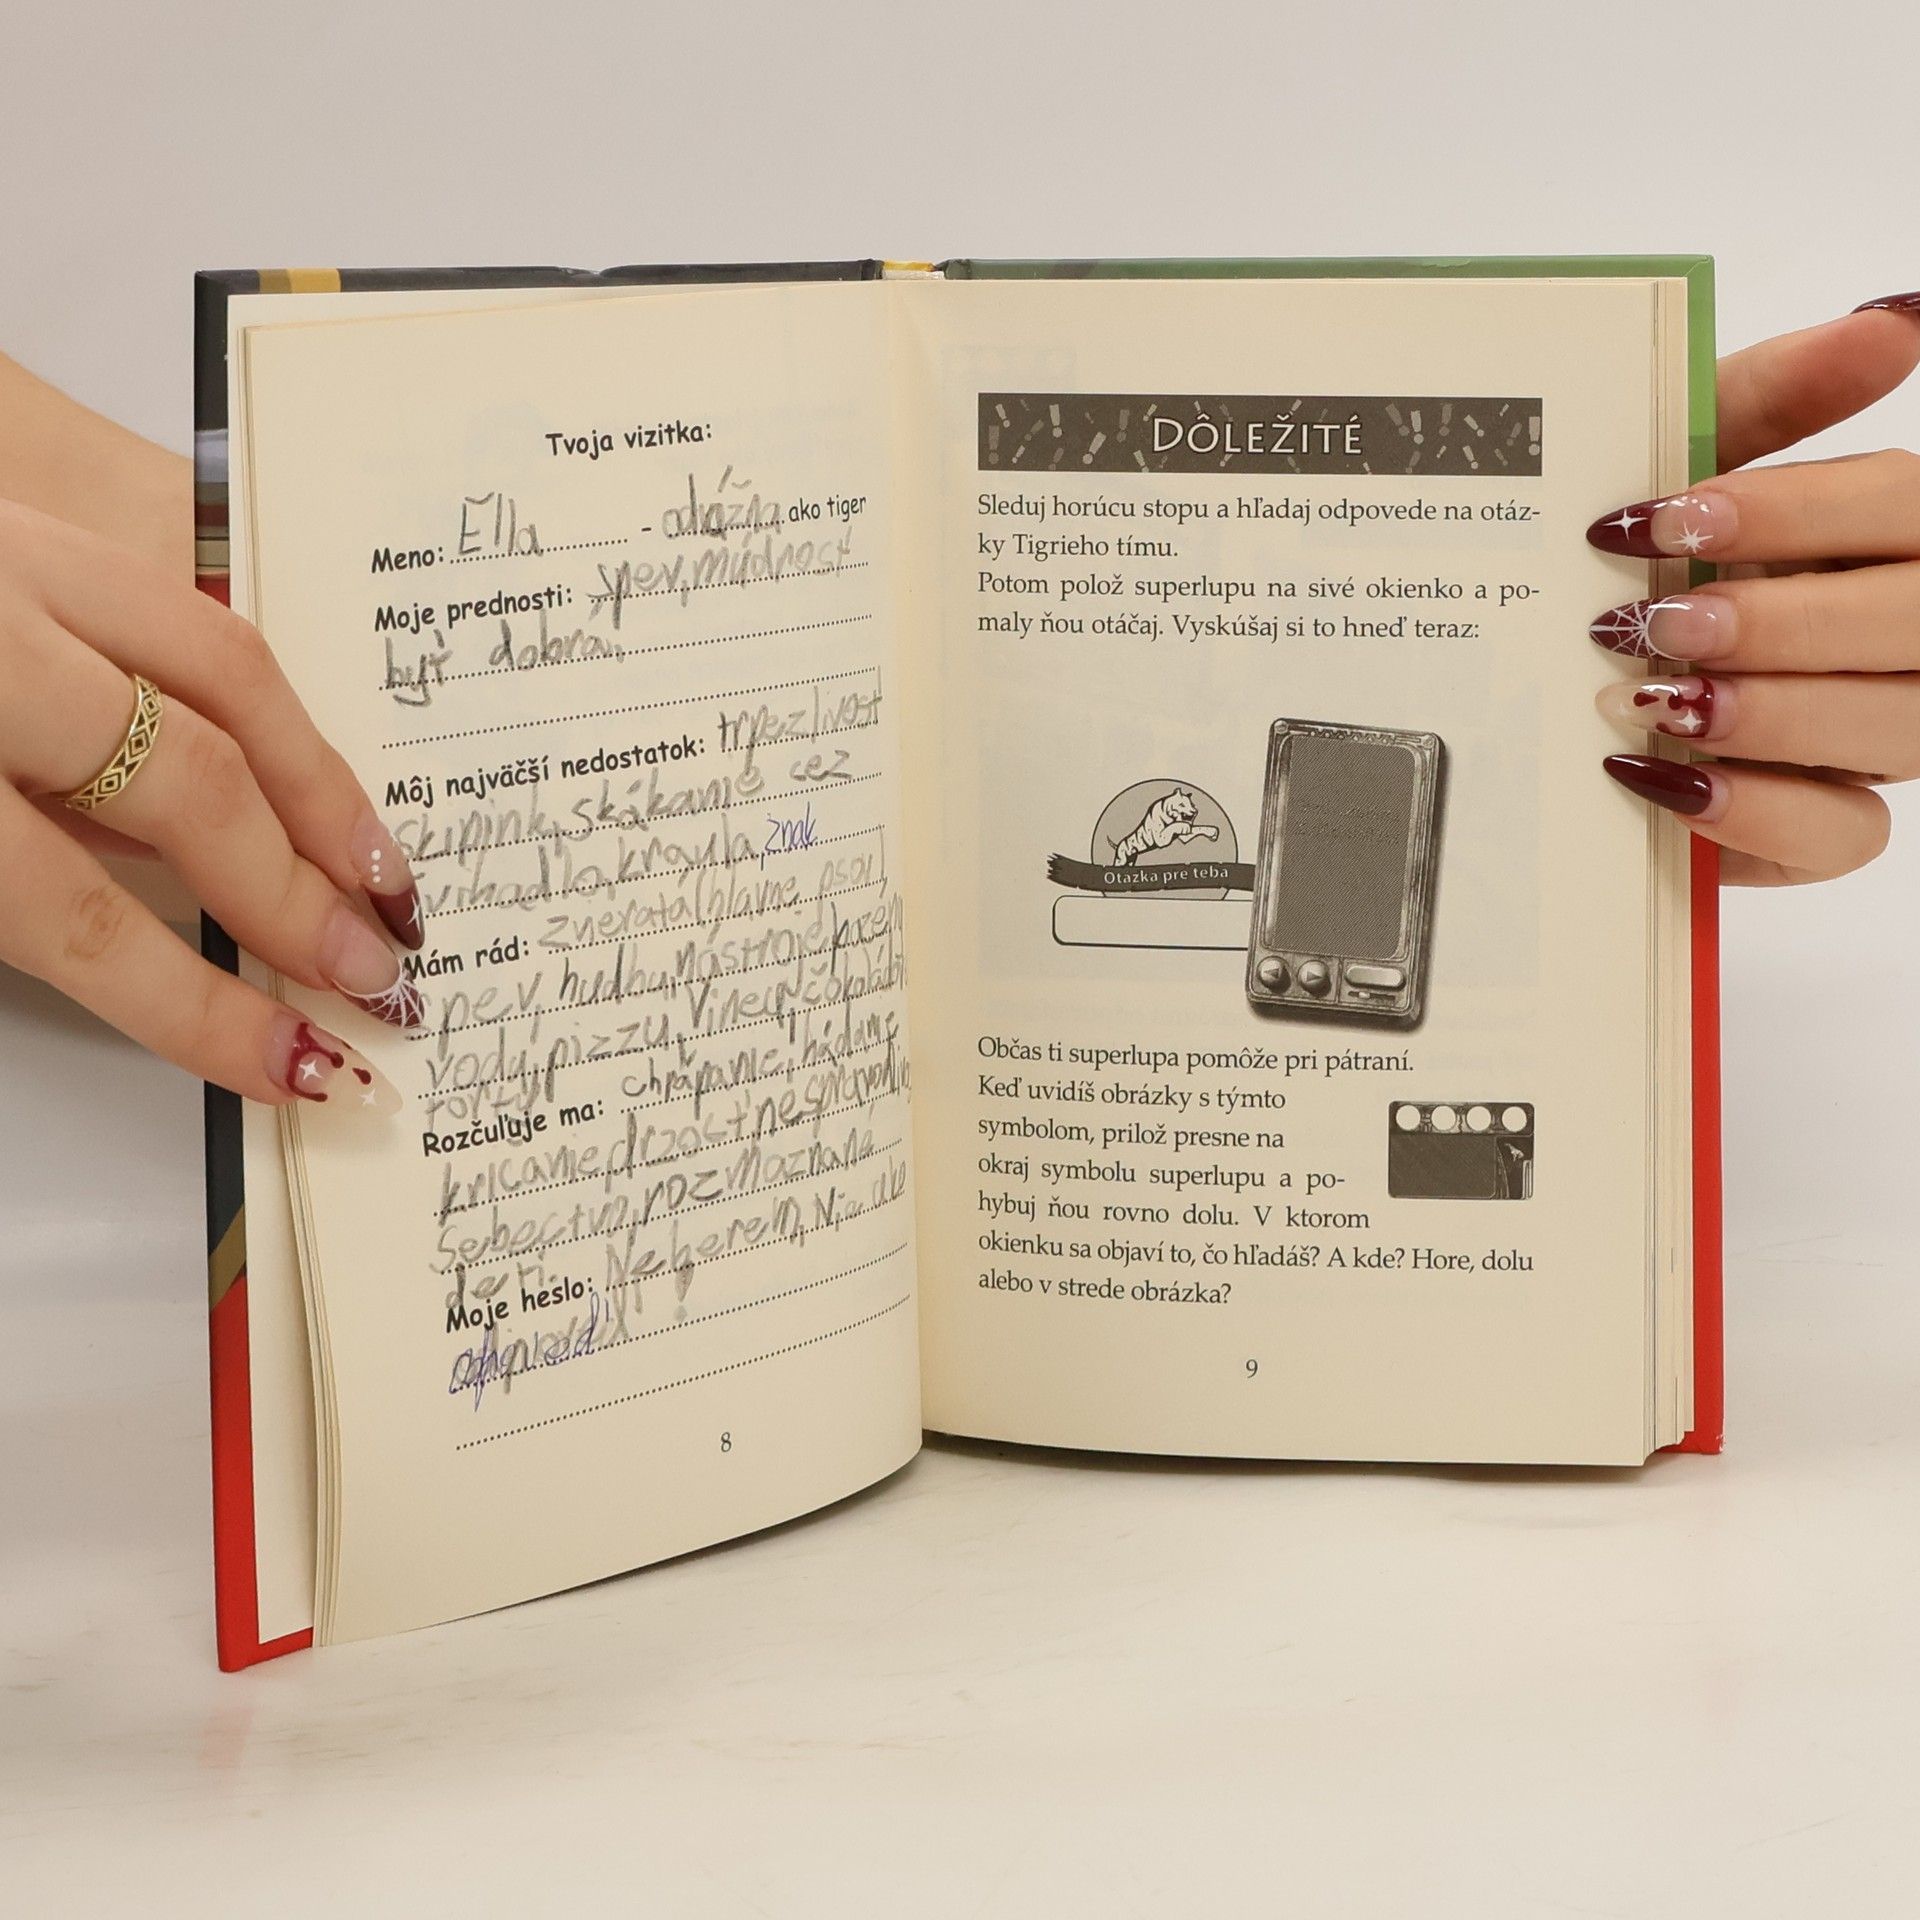 Tvoja vizitka:
Meno: Ella - odvážna ako tiger
Moje prednosti: spev, múdrosť
byť dobrá,
Môj najväčší nedostatok: trpezlivosť
skipink, skákanie cez
švihadlo, kraula, znak
Mám rád: zvieratá (hlavne psov)
spev, hudbu, nástroje
vodu, pizzu, Vinea, čokoládo
torty
Rozčuľuje ma: chrápanie, hádanie
kričanie, drzosť, nespravodlivo
sebectvo, rozmaznané
deti.
Moje heslo: Neberem, Nie ako
odpoveď!
8
DÔLEŽITÉ
Sleduj horúcu stopu a hľadaj odpovede na otáz-
ky Tigrieho tímu.
Potom polož superlupu na sivé okienko a po-
maly ňou otáčaj. Vyskúšaj si to hneď teraz:
Otázka pre teba
Občas ti superlupa pomôže pri pátraní.
Keď uvidíš obrázky s týmto
symbolom, prilož presne na
okraj symbolu superlupu a po-
hybuj ňou rovno dolu. V ktorom
okienku sa objaví to, čo hľadáš? A kde? Hore, dolu
alebo v strede obrázka?
9